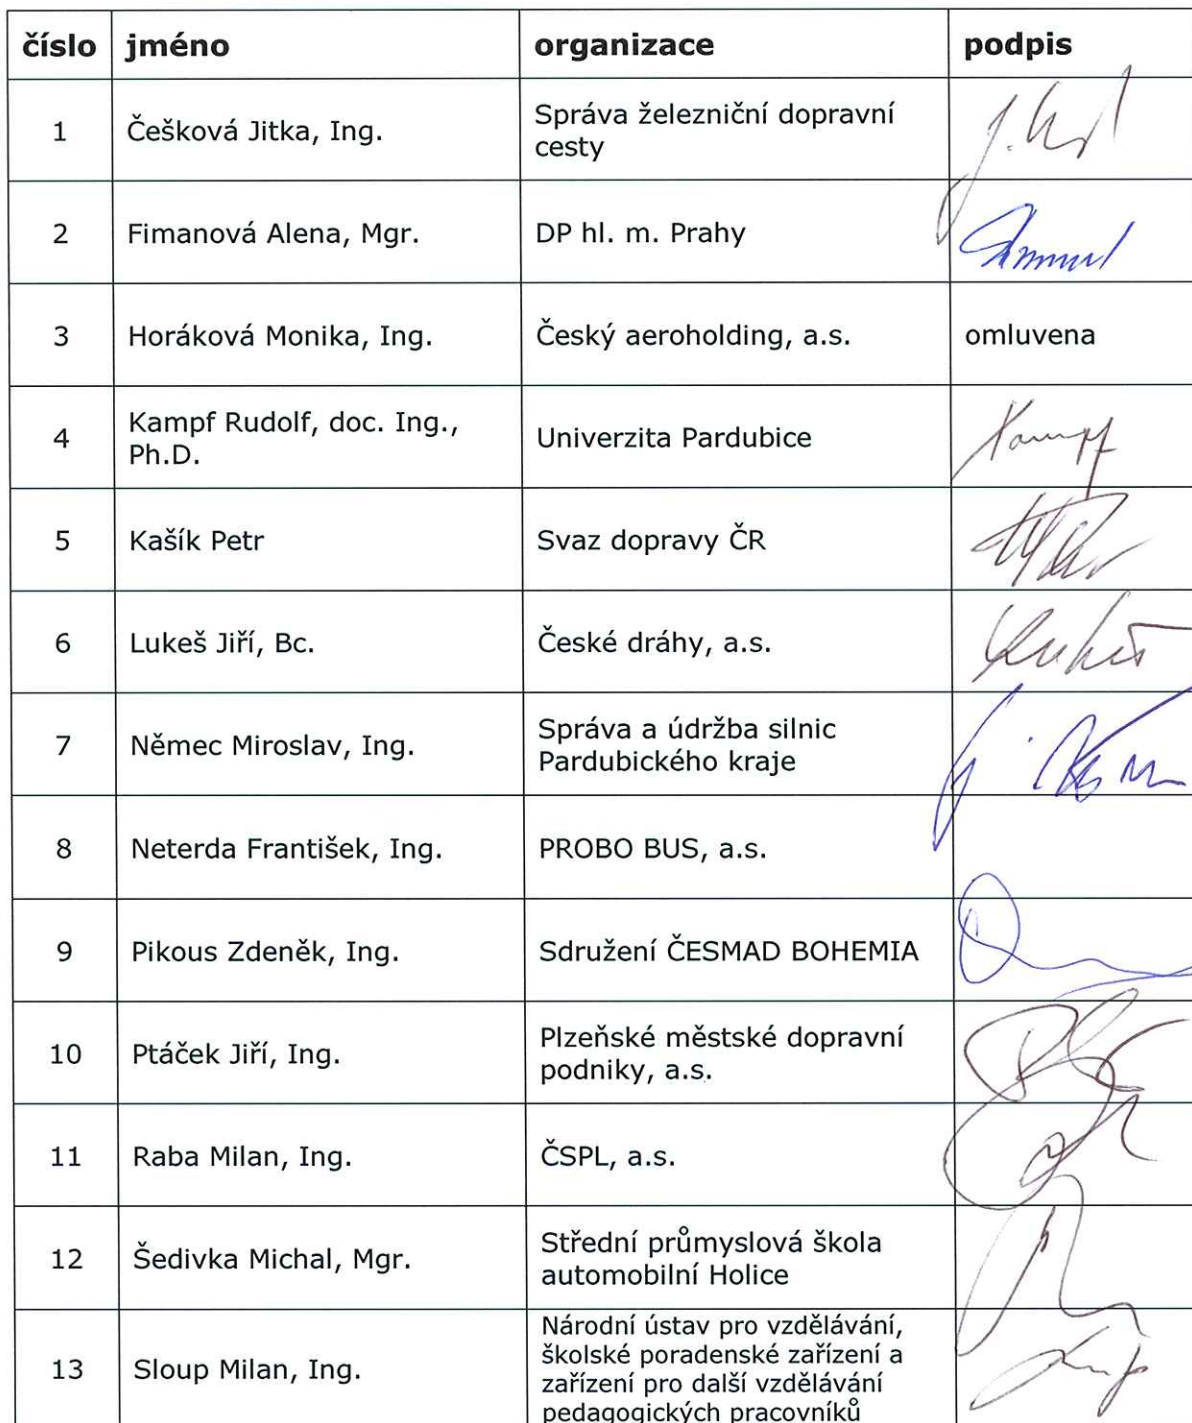 číslo jméno organizace podpis
1 Češková Jitka, Ing. Správa železniční dopravní
cesty
2 Fimanová Alena, Mgr. DP hl. m. Prahy
3 Horáková Monika, Ing. Český aeroholding, a.s. omluvena
4 Kampf Rudolf, doc. Ing.,
Ph.D. Univerzita Pardubice Kampf
5 Kašík Petr Svaz dopravy ČR
6 Lukeš Jiří, Bc. České dráhy, a.s. Lukeš
7 Němec Miroslav, Ing. Správa a údržba silnic
Pardubického kraje
8 Neterda František, Ing. PROBO BUS, a.s.
9 Pikous Zdeněk, Ing. Sdružení ČESMAD BOHEMIA
10 Ptáček Jiří, Ing. Plzeňské městské dopravní
podniky, a.s.
11 Raba Milan, Ing. ČSPL, a.s.
12 Šedivka Michal, Mgr. Střední průmyslová škola
automobilní Holice
13 Sloup Milan, Ing. Národní ústav pro vzdělávání,
školské poradenské zařízení a
zařízení pro další vzdělávání
pedagogických pracovníků